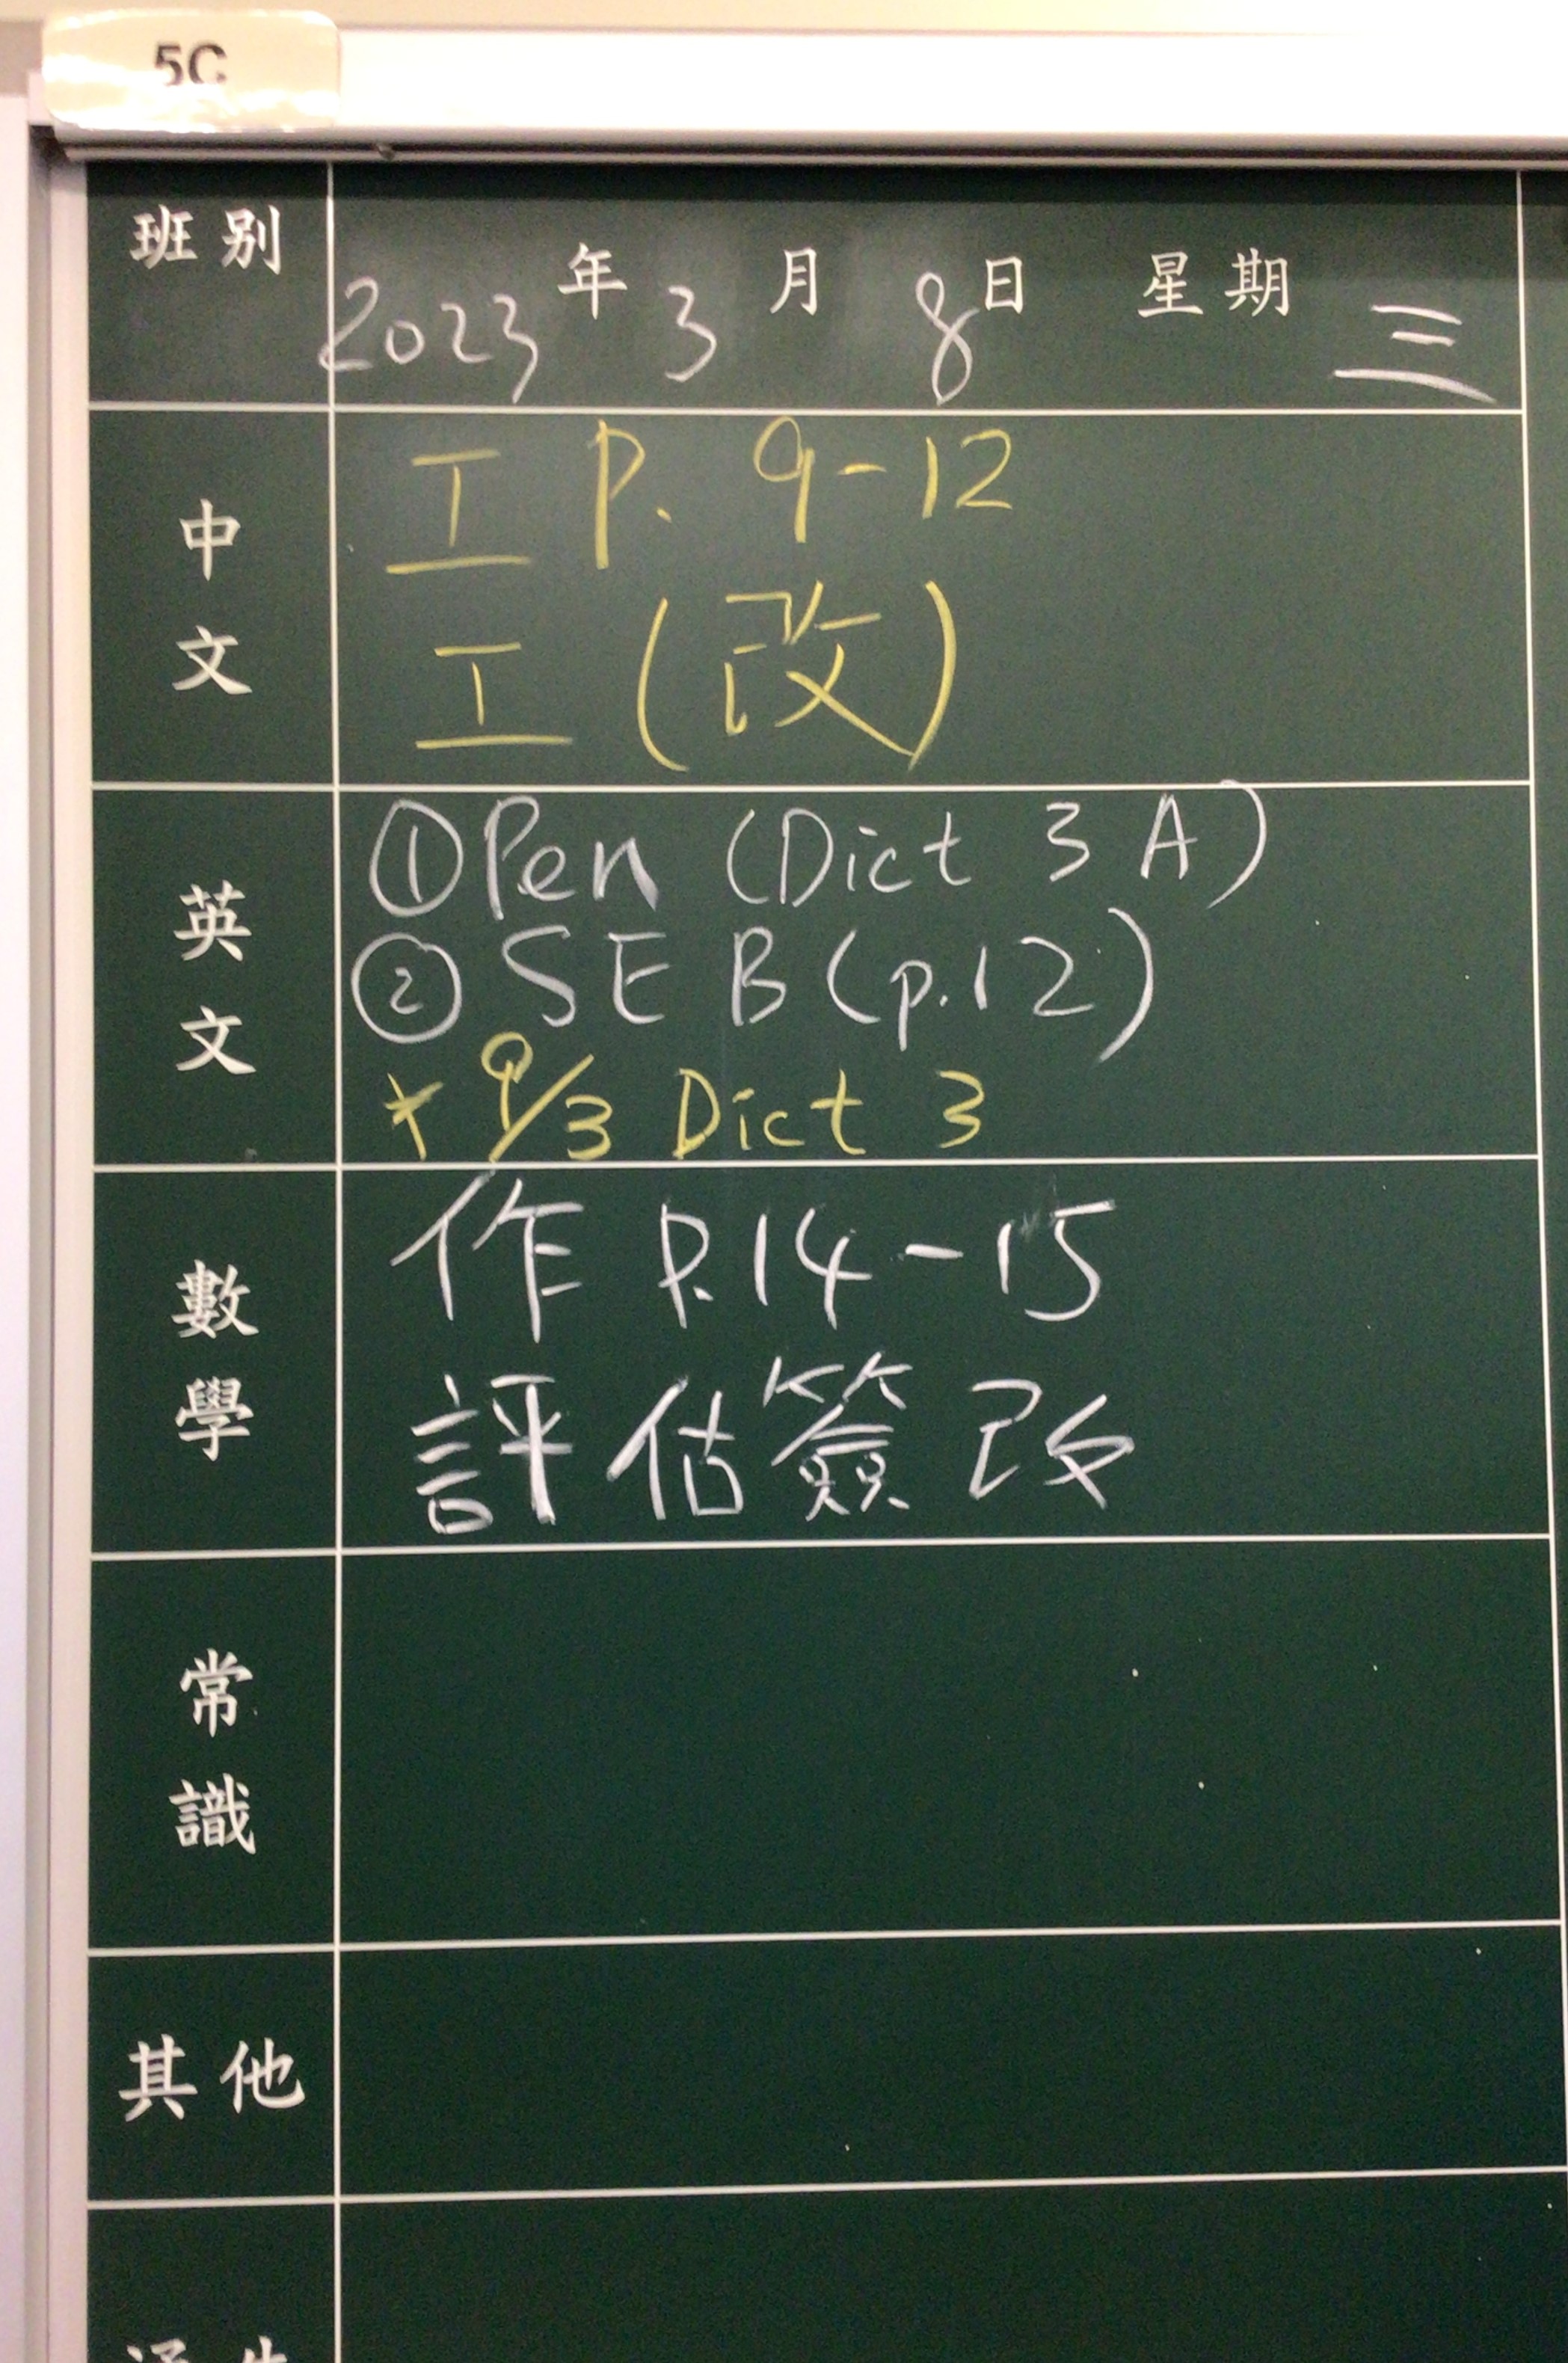 5C
班別
年 月 日 星期
2023 3 8 三
中文
工 P. 9-12
工 (改)
英文
① Pen (Dict 3 A)
② SE B (p.12)
* 9/3 Dict 3
數學
作 P.14-15
評估簽改
常識
其他